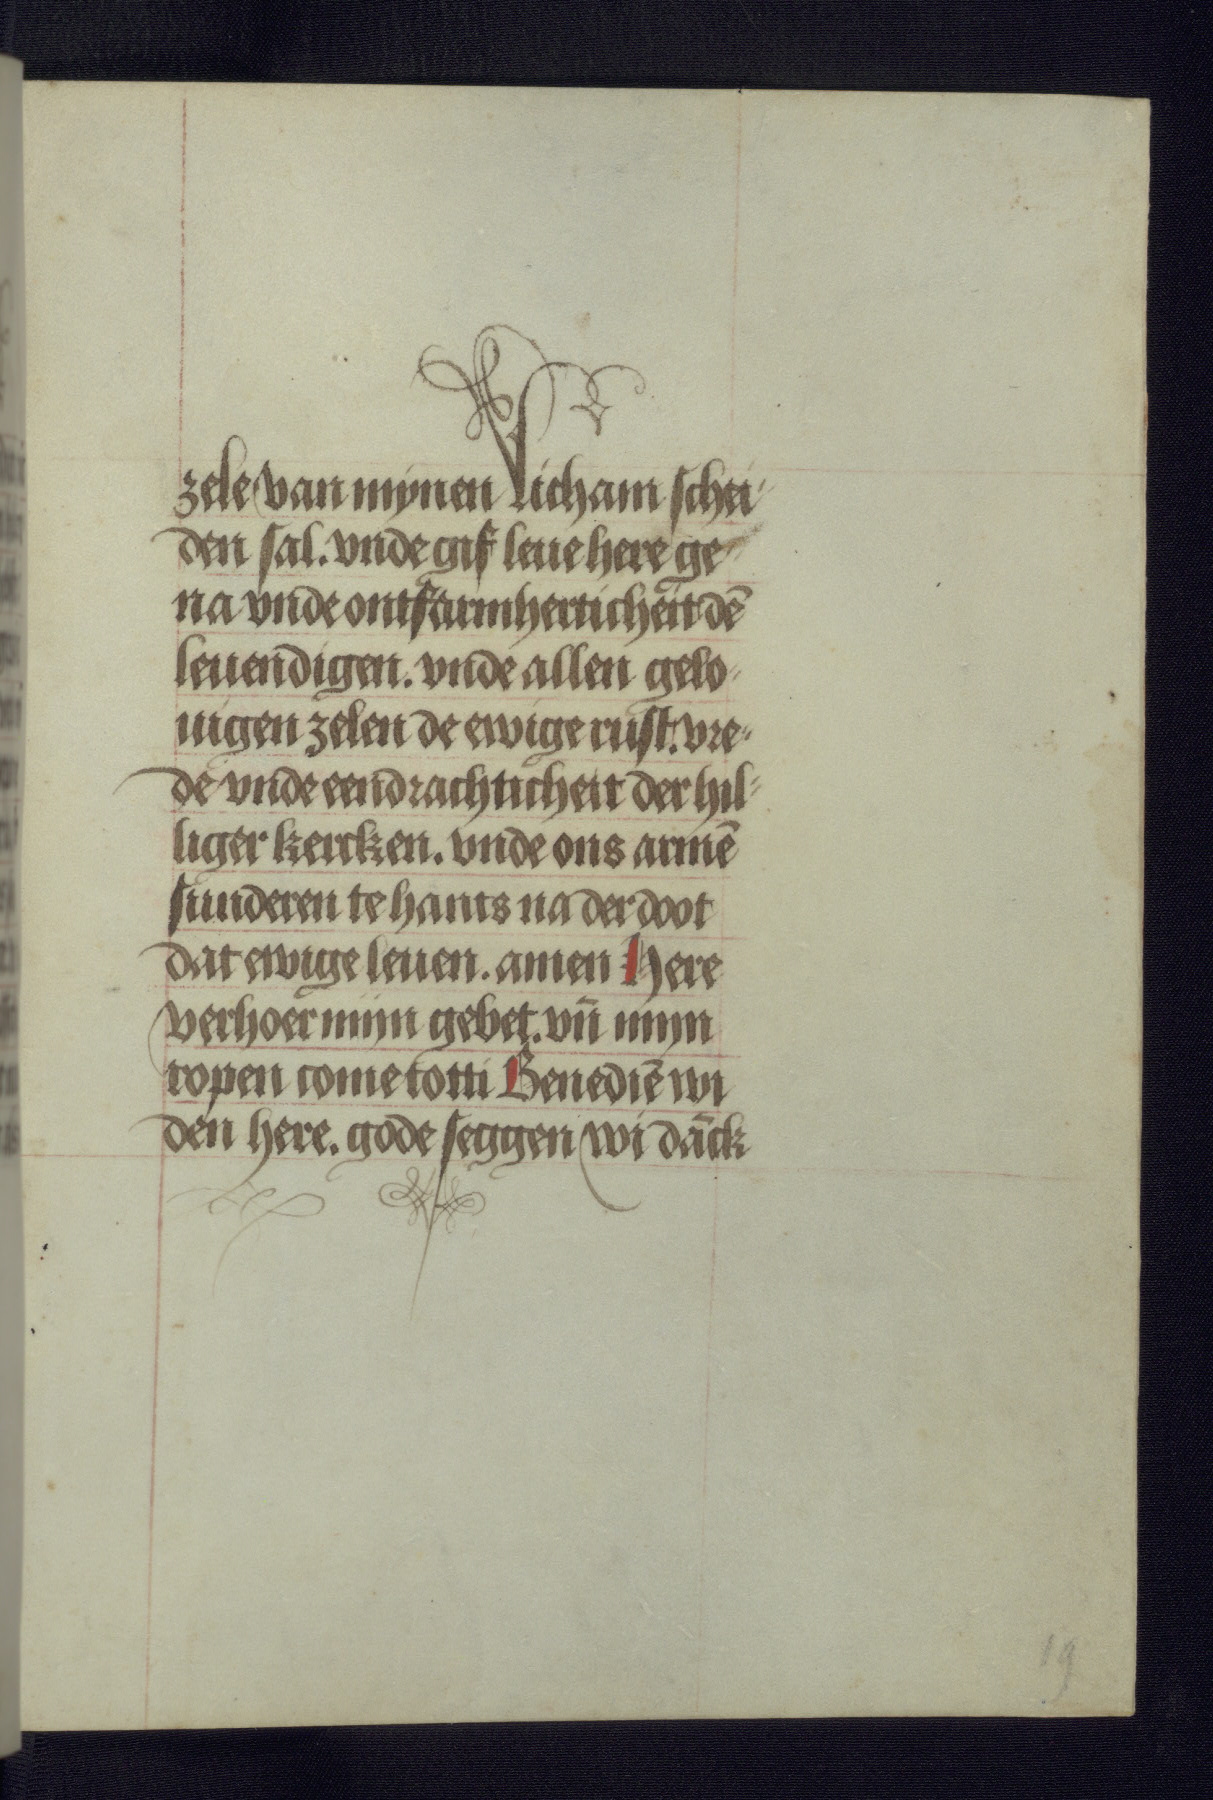 zele van mijnen licham schei-
den sal. vnde gif leue here ge-
na vnde ontfarmherticheit dē
leuendigen. vnde allen gelo-
uigen zelen de ewige rust. vre-
de vnde eendrachticheit der hil-
liger kercken. vnde ons armē
sunderen te hants na der doot
dat ewige leuen. amen Here
verhoer mijn gebet. vñ mijn
ropen come totti Benediē wi
den here. gode seggen wi dāck
19